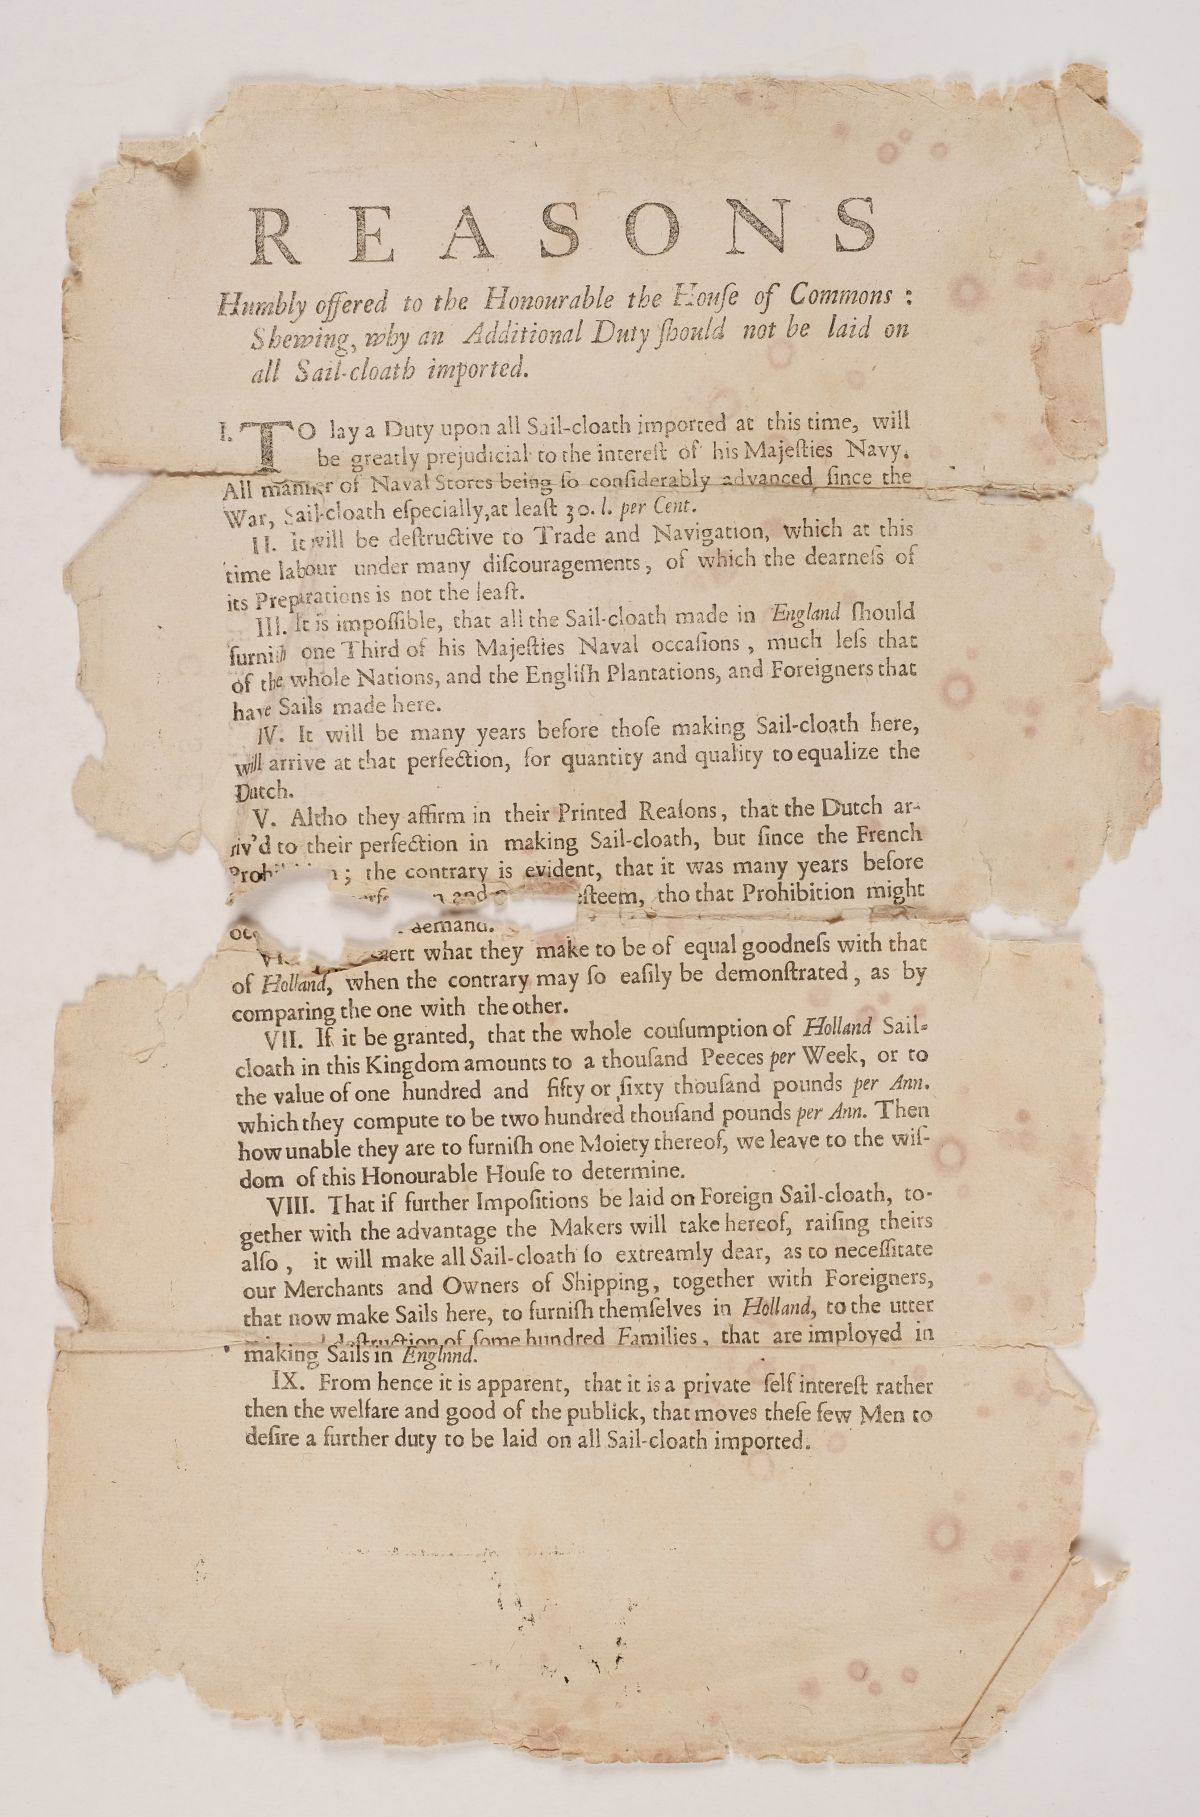 REASONS
Humbly offered to the Honourable the Houſe of Commons :
Shewing, why an Additional Duty ſhould not be laid on
all Sail-cloath imported.
I. TO lay a Duty upon all Sail-cloath imported at this time, will
be greatly prejudicial to the intereſt of his Majeſties Navy.
All manner of Naval Stores being ſo conſiderably advanced ſince the
War, Sail-cloath eſpecially, at leaſt 30. l. per Cent.
II. It will be deſtructive to Trade and Navigation, which at this
time labour under many diſcouragements, of which the dearneſs of
its Preparations is not the leaſt.
III. It is impoſſible, that all the Sail-cloath made in England ſhould
furniſh one Third of his Majeſties Naval occaſions, much leſs that
of the whole Nations, and the Engliſh Plantations, and Foreigners that
have Sails made here.
IV. It will be many years before thoſe making Sail-cloath here,
will arrive at that perfection, for quantity and quality to equalize the
Dutch.
V. Altho they affirm in their Printed Reaſons, that the Dutch ar-
riv'd to their perfection in making Sail-cloath, but ſince the French
; the contrary is evident, that it was many years before
and eſteem, tho that Prohibition might
demand.
what they make to be of equal goodneſs with that
of Holland, when the contrary may ſo eaſily be demonſtrated, as by
comparing the one with the other.
VII. If it be granted, that the whole couſumption of Holland Sail-
cloath in this Kingdom amounts to a thouſand Peeces per Week, or to
the value of one hundred and fifty or ſixty thouſand pounds per Ann.
which they compute to be two hundred thouſand pounds per Ann. Then
how unable they are to furniſh one Moiety thereof, we leave to the wiſ-
dom of this Honourable Houſe to determine.
VIII. That if further Impoſitions be laid on Foreign Sail-cloath, to-
gether with the advantage the Makers will take hereof, raiſing theirs
alſo, it will make all Sail-cloath ſo extreamly dear, as to neceſſitate
our Merchants and Owners of Shipping, together with Foreigners,
that now make Sails here, to furniſh themſelves in Holland, to the utter
deſtruction of ſome hundred Families, that are imployed in
making Sails in Englnnd.
IX. From hence it is apparent, that it is a private ſelf intereſt rather
then the welfare and good of the publick, that moves theſe few Men to
deſire a further duty to be laid on all Sail-cloath imported.